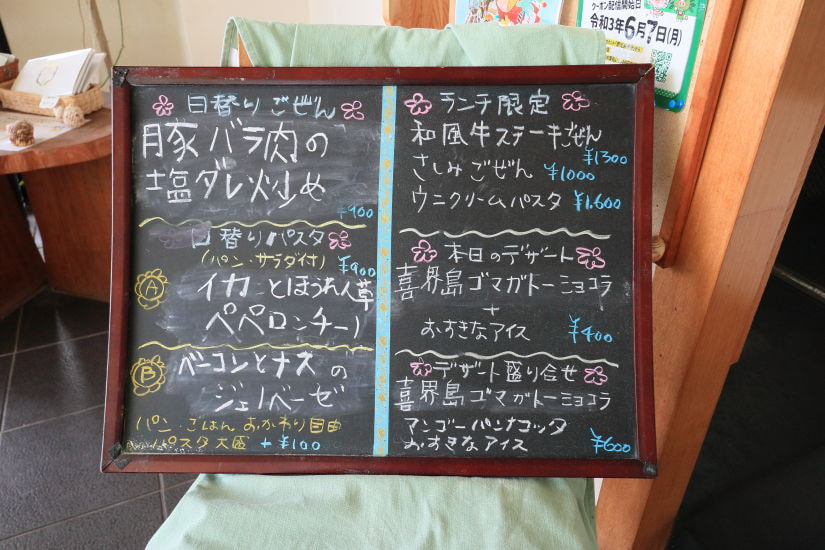 日替りごぜん
豚バラ肉の
塩ダレ炒め
¥900
日替りパスタ
(パン・サラダ付)
¥900
A
イカとほうれん草
ペペロンチーノ
B
ベーコンとナスの
ジェノベーゼ
パン・ごはんおかわり自由
パスタ大盛 +¥100
ランチ限定
和風牛ステーキごぜん
¥1300
さしみごぜん ¥1000
ウニクリームパスタ ¥1.600
本日のデザート
喜界島ゴマガトーショコラ
+
おすきなアイス ¥400
デザート盛り合せ
喜界島ゴマガトーショコラ
マンゴーパンナコッタ
おすきなアイス
¥600
クーポン配信開始日
令和3年6月7日(月)